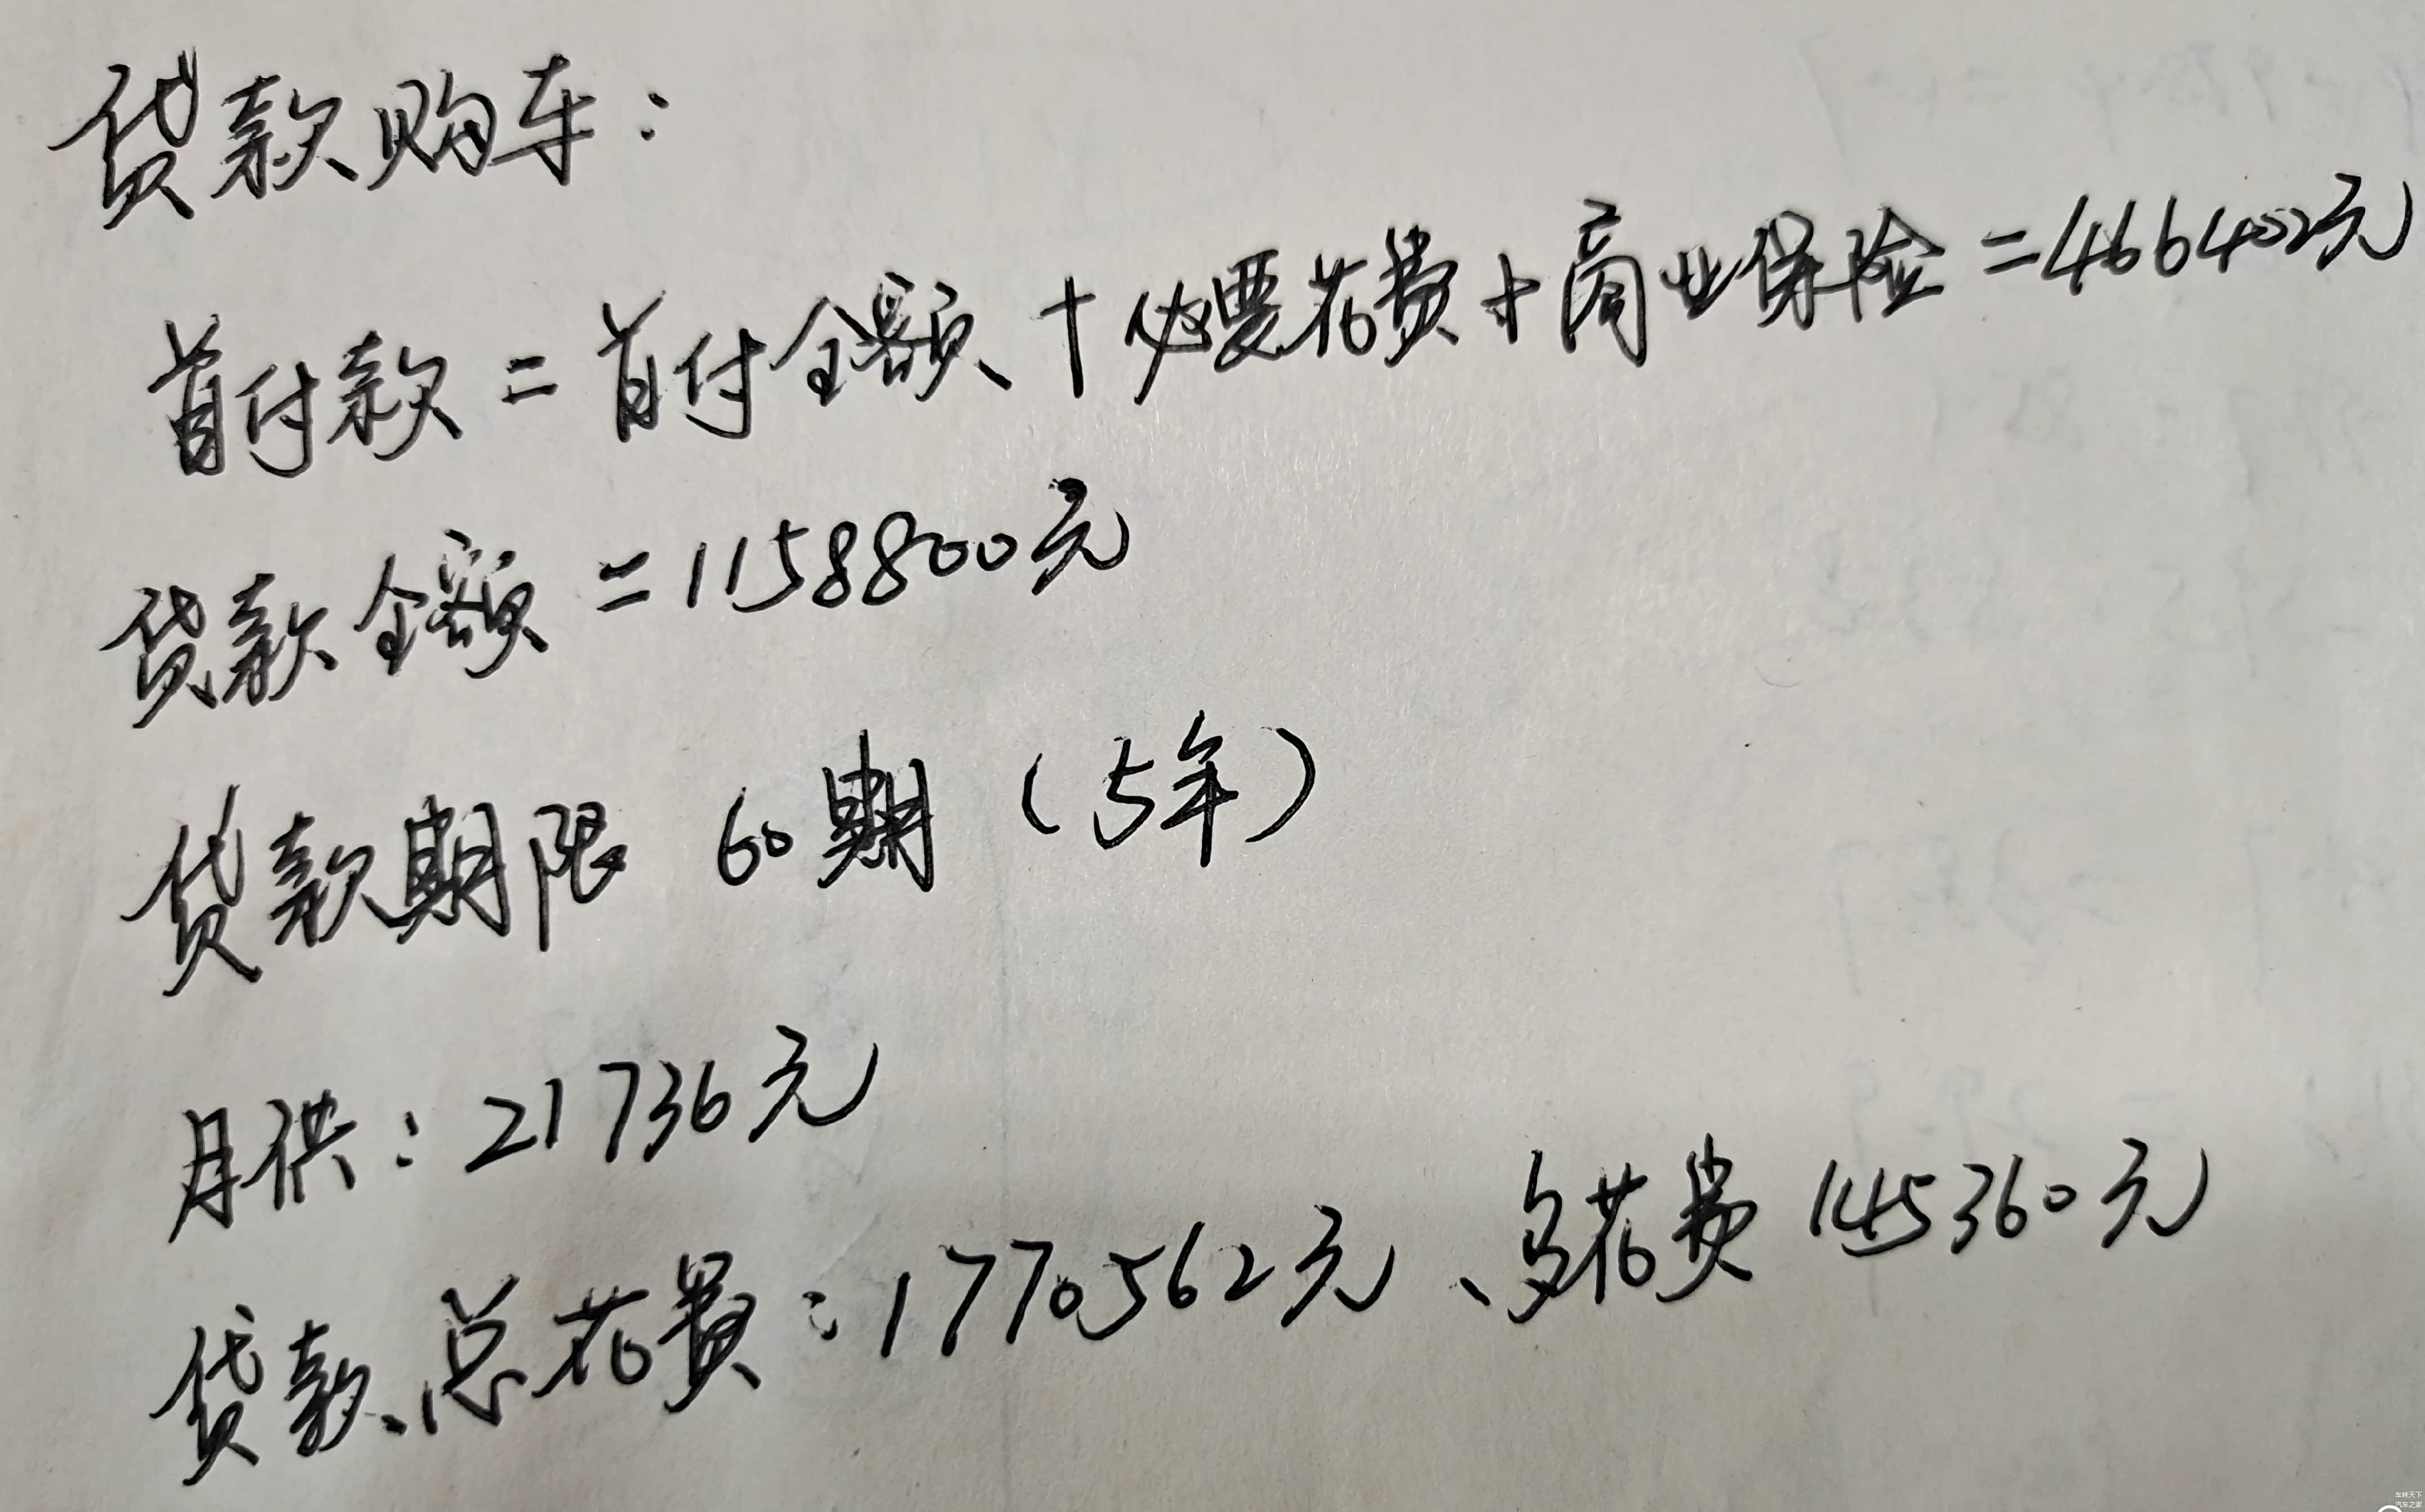 贷款购车：
首付款=首付金额+必要花费+商业保险=466402元
贷款金额=1158800元
贷款期限 60期（5年）
月供：21736元
贷款总花费：1770562元、多花费145360元
车林天下
汽车之家